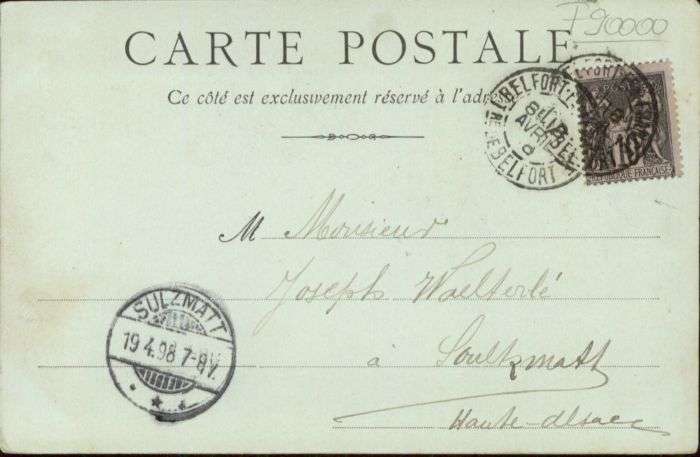 F 90000
CARTE POSTALE
Ce côté est exclusivement réservé à l'adresse
BELFORT
AVRIL
BELFORT
10
RÉPUBLIQUE FRANÇAISE
M Monsieur
Joseph Waelterlé
à Soultzmatt
Haute-Alsace
SULZMATT
19 4.98 7-8V.